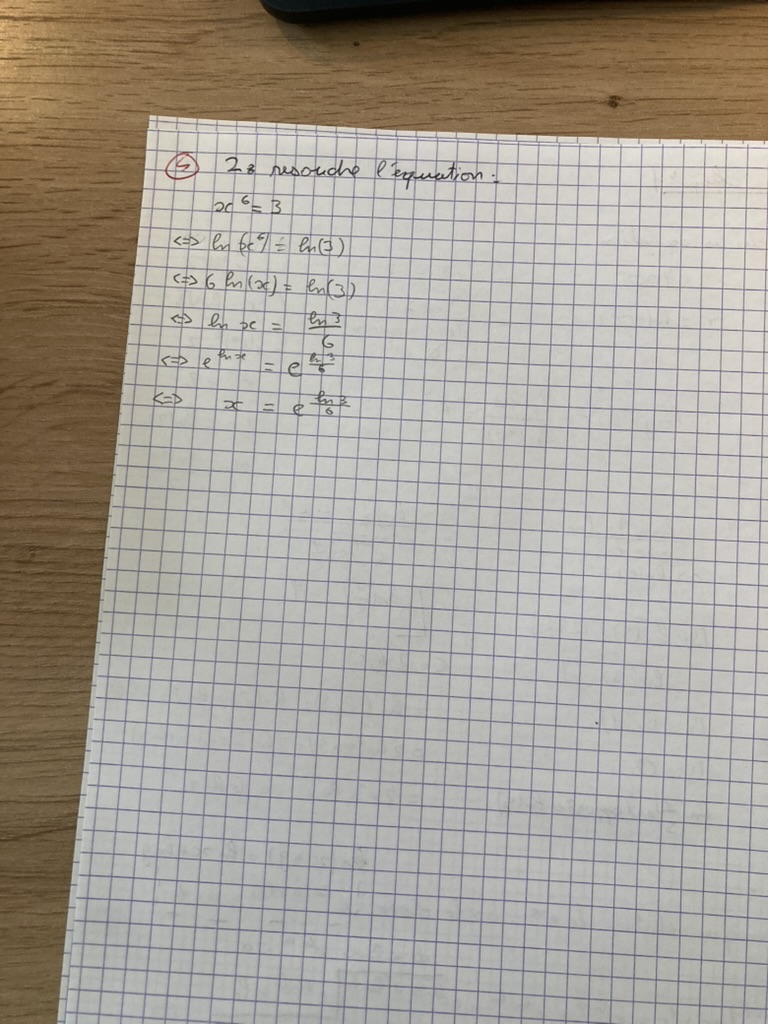 5 2: resoudre l'equation:
x^6 = 3
<=> ln(x^6) = ln(3)
<=> 6 ln(x) = ln(3)
<=> ln x = ln 3 / 6
<=> e^(ln x) = e^(ln 3 / 6)
<=> x = e^(ln 3 / 6)